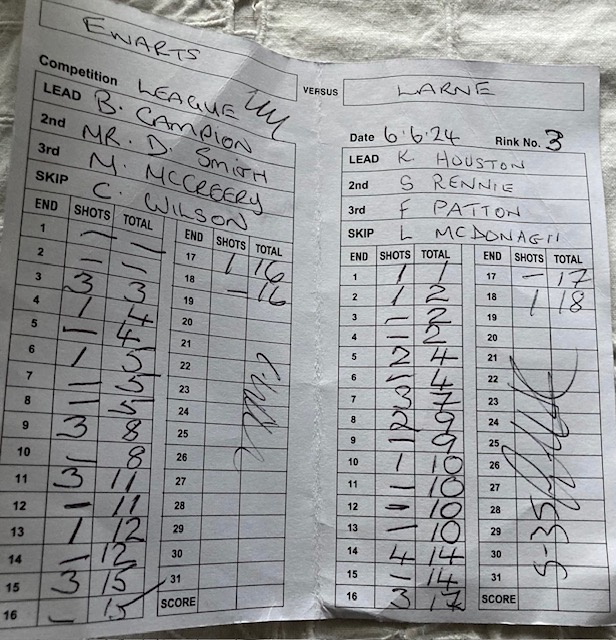 EWARTS
Competition LEAGUE
LEAD B. CAMPION
2nd MR. D. SMITH
3rd M. MCCREERY
SKIP C. WILSON
END SHOTS TOTAL END SHOTS TOTAL
1 — — 17 1 16
2 — — 18 — 16
3 3 3 19
4 1 4 20
5 — 4 21
6 1 5 22
7 — 5 23
8 — 5 24
9 3 8 25
10 — 8 26
11 3 11 27
12 — 11 28
13 1 12 29
14 — 12 30
15 3 15 31
16 — 15 SCORE
VERSUS LARNE
Date 6.6.24 Rink No. 3
LEAD K HOUSTON
2nd S RENNIE
3rd F PATTON
SKIP L MCDONAGH
END SHOTS TOTAL END SHOTS TOTAL
1 1 1 17 — 17
2 1 2 18 1 18
3 — 2 19
4 — 2 20
5 2 4 21
6 — 4 22
7 3 7 23
8 2 9 24
9 — 9 25
10 1 10 26
11 — 10 27
12 — 10 28
13 — 10 29
14 4 14 30
15 — 14 31
16 3 17 SCORE
5-35